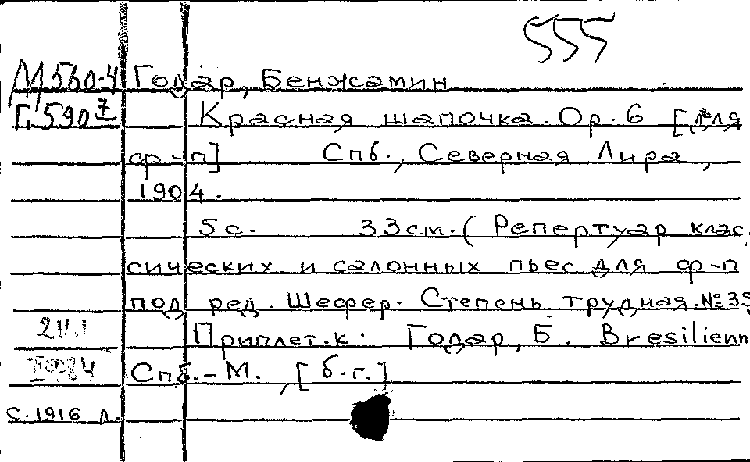 555
М560-4 Годар, Бенжамин
Г.590 Красная шапочка. Ор. 6 [для
ф-п] Спб., Северная Лира,
1904.
5с. 33см. (Репертуар клас
сических и салонных пьес для ф-п
под ред. Шефер. Степень трудная. №
Приплет. к: Годар, Б. Bresilienn
Спб.-М., [б.г.]
с. 1916 л.